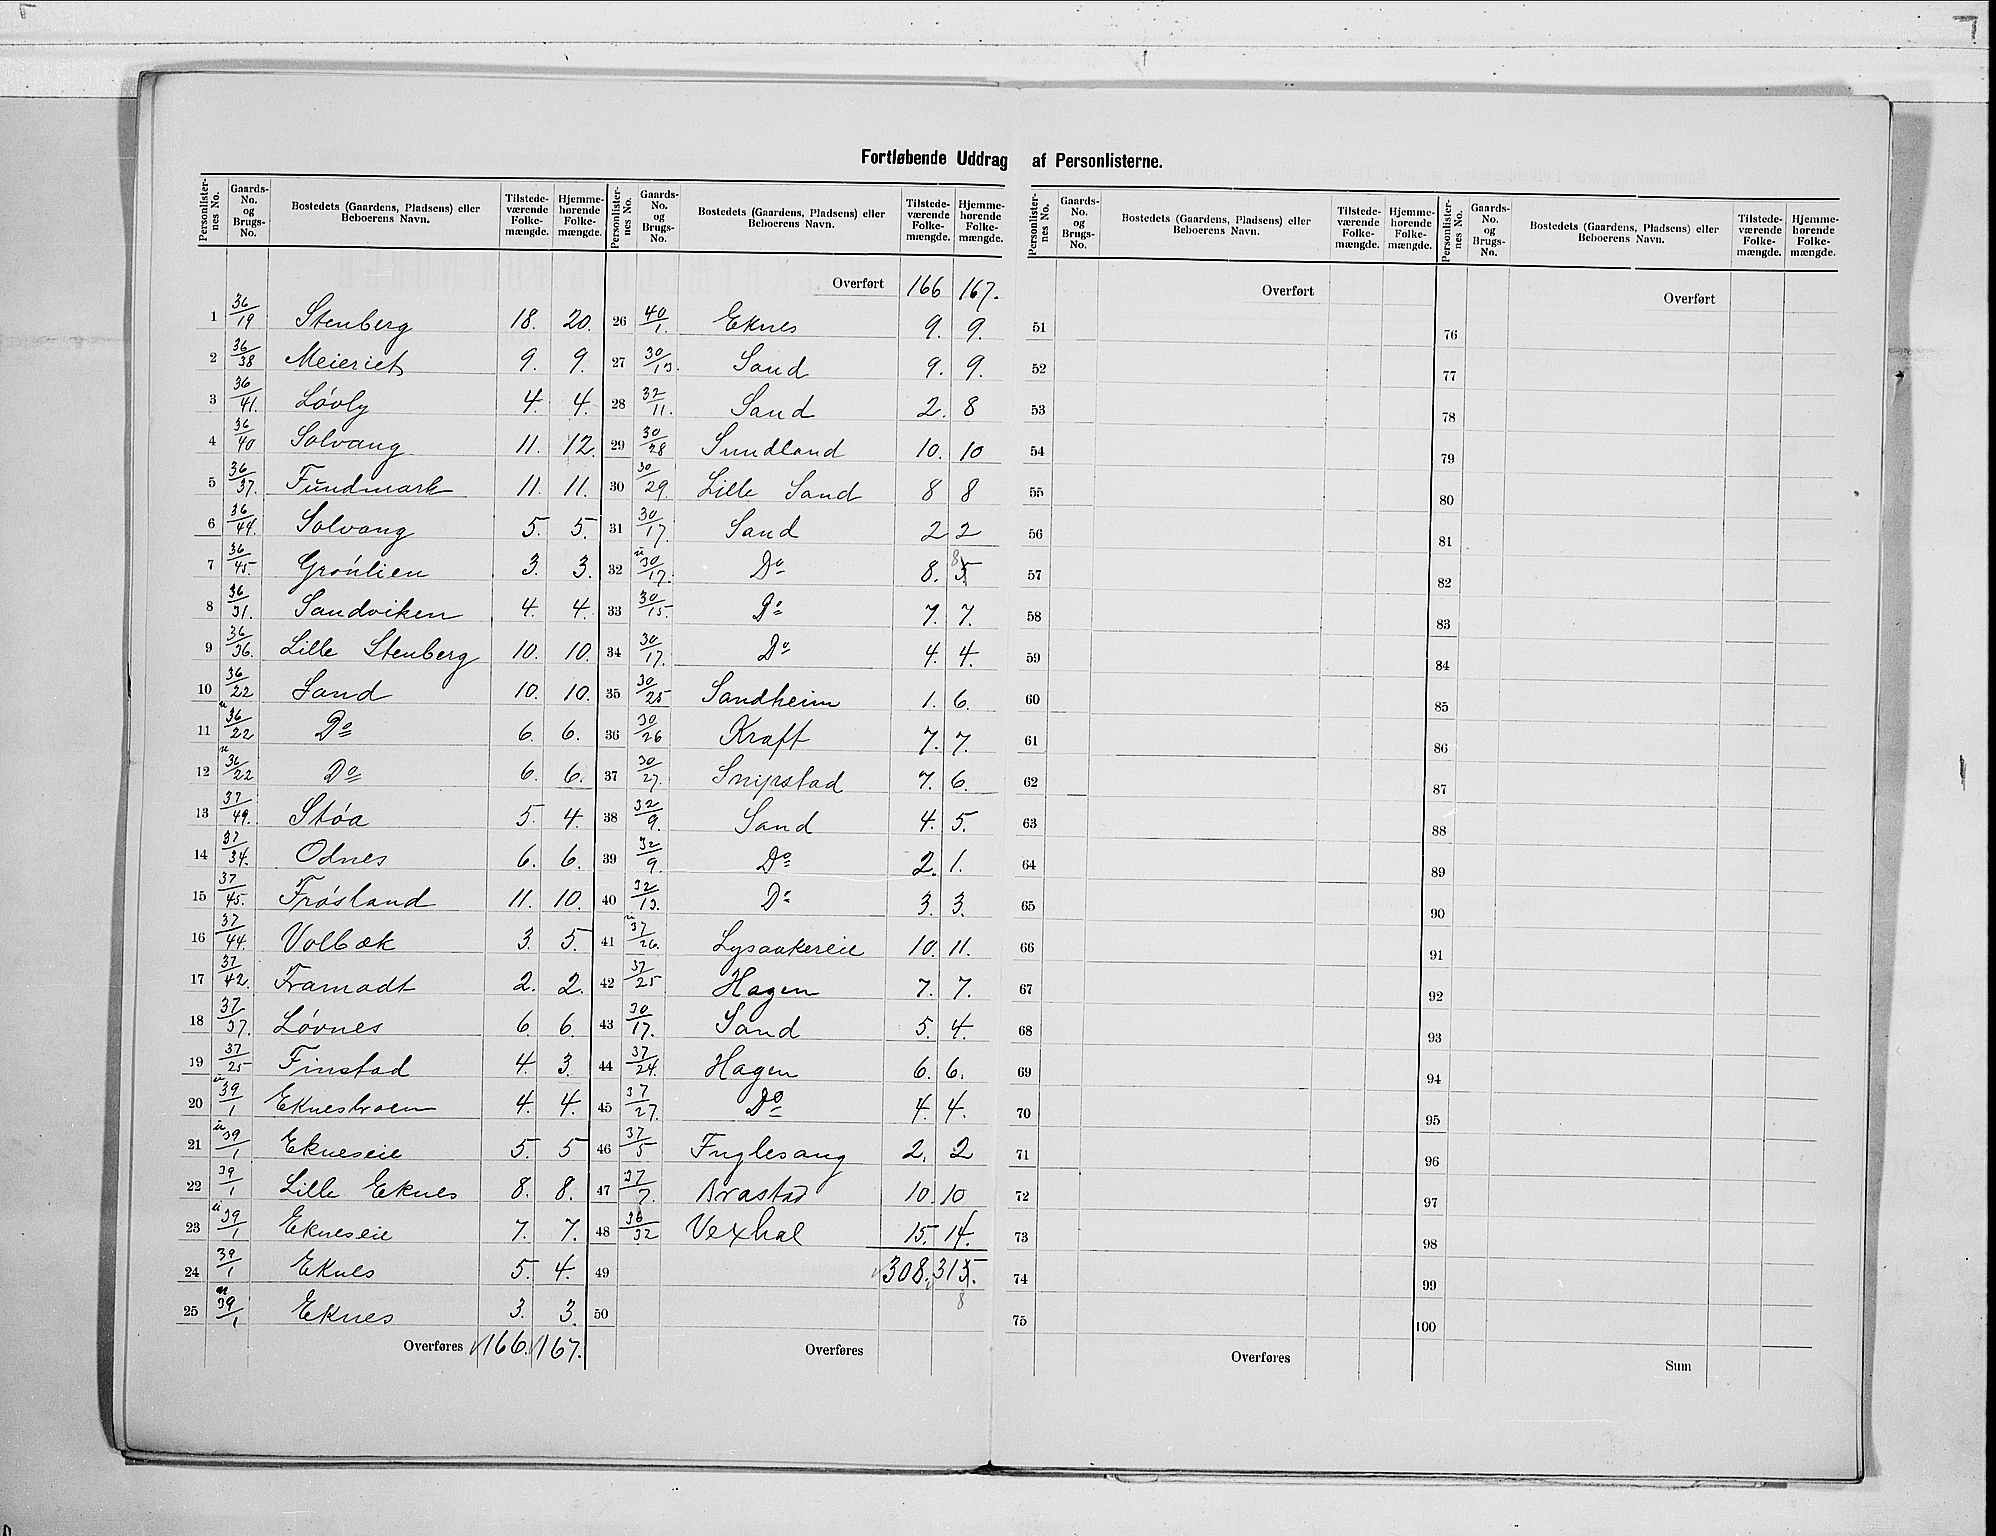 Fortløbende Uddrag af Personlisternes.
Personlister-nes No. | Gaards-No. og Brugs-No. | Bostedets (Gaardens, Pladsens) eller Beboerens Navn. | Tilstede-værende Folke-mængde. | Hjemme-hørende Folke-mængde.
1 36/19 Stenberg 18. 20.
2 36/38 Meieriet 9. 9.
3 36/41. Løvly 4. 4.
4 36/40 Solvang 11. 12.
5 36/37. Fundmark 11. 11.
6 36/44. Solvang 5. 5.
7 36/45. Grønlien 3. 3.
8 36/31. Sandviken 4. 4.
9 36/36. Lille Stenberg 10. 10.
10 36/22 Sand 10. 10.
11 u 36/22 Do 6. 6.
12 u 36/22 Do 6. 6.
13 37/49. Støa 5. 4.
14 37/34. Odnes 6. 6.
15 37/45. Frøsland 11. 10.
16 37/44. Volbæk 3. 5.
17 37/42. Framadt 2. 2.
18 37/37. Løvnes 6. 6.
19 37/25 Finstad 4. 3.
20 u 39/1 Eknesbroen 4. 4.
21 u 39/1 Ekneseie 5. 5
22 39/1 Lille Eknes 8. 8.
23 u 39/1 Ekneseie 7. 7.
24 39/1 Eknes 5. 4.
25 39/1 Eknes 3. 3.
Overføres 166. 167.
Personlister-nes No. | Gaards-No. og Brugs-No. | Bostedets (Gaardens, Pladsens) eller Beboerens Navn. | Tilstede-værende Folke-mængde. | Hjemme-hørende Folke-mængde.
Overført 166 167.
26 40/1. Eknes 9. 9.
27 30/13. Sand 9. 9.
28 32/11. Sand 2. 8
29 30/28 Sundland 10. 10
30 30/29. Lille Sand 8 8
31 30/17. Sand 2 2
32 u 30/17. Do 8. 5 8
33 30/15. Do 7. 7.
34 30/17. Do 4. 4.
35 30/25 Sandheim 1. 6.
36 30/26 Kraft 7. 7.
37 30/27. Snipstad 7. 6.
38 32/9. Sand 4. 5.
39 32/9. Do 2. 1.
40 32/13. Do 3. 3.
41 u 37/26. Lysaakereie 10. 11.
42 37/25 Hagen 7. 7.
43 30/17. Sand 5. 4.
44 37/24. Hagen 6. 6.
45 37/27. Do 4. 4.
46 37/5 Fuglesang 2. 2
47 37/7. Brastad 10. 10
48 36/32 Vexhal 15. 14.
49 308. 315.
50 8
Overføres
Personlister-nes No. | Gaards-No. og Brugs-No. | Bostedets (Gaardens, Pladsens) eller Beboerens Navn. | Tilstede-værende Folke-mængde. | Hjemme-hørende Folke-mængde.
Overført
51
52
53
54
55
56
57
58
59
60
61
62
63
64
65
66
67
68
69
70
71
72
73
74
75
Overføres
Personlister-nes No. | Gaards-No. og Brugs-No. | Bostedets (Gaardens, Pladsens) eller Beboerens Navn. | Tilstede-værende Folke-mængde. | Hjemme-hørende Folke-mængde.
Overført
76
77
78
79
80
81
82
83
84
85
86
87
88
89
90
91
92
93
94
95
96
97
98
99
100
Sum